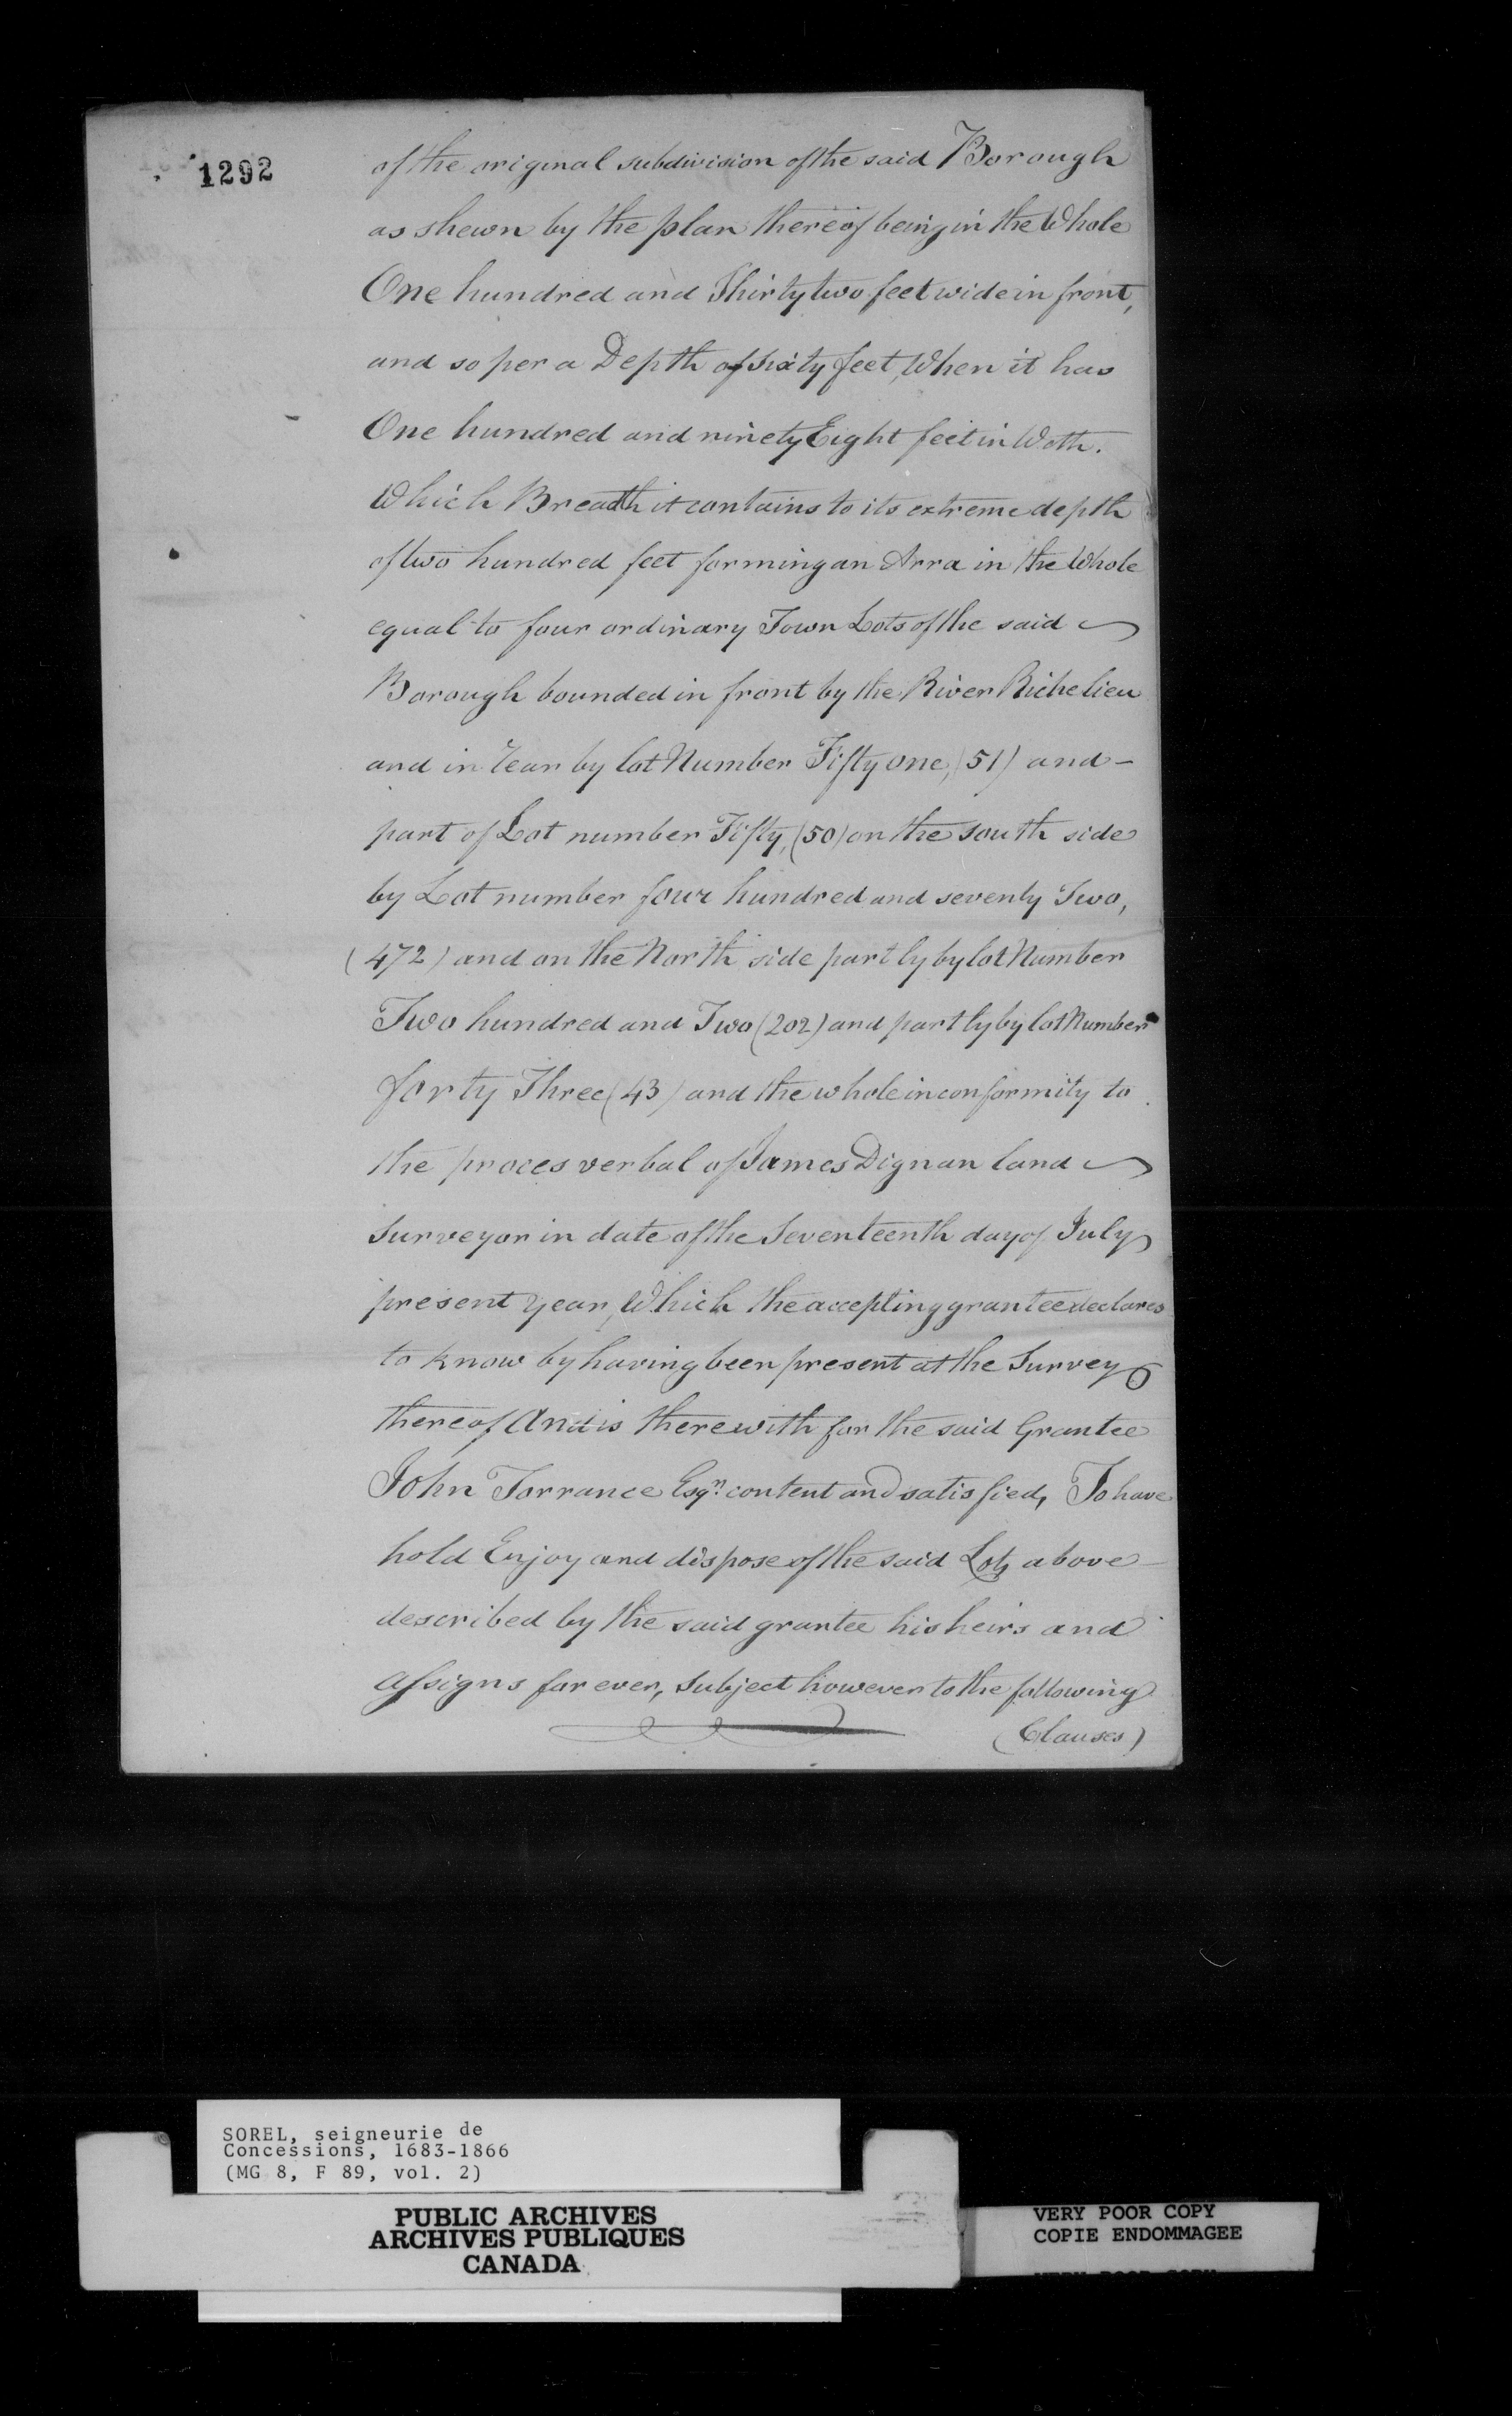 1292
of the original subdivision of the said Borough
as shewn by the plan thereof being in the Whole
One hundred and Thirty two feet wide in front,
and so per a Depth of sixty feet, When it has
One hundred and ninety Eight feet in Wdth.
Which Breadth it contains to its extreme depth
of two hundred feet forming an Arra in the Whole
equal to four ordinary Town Lots of the said
Borough bounded in front by the River Richelieu
and in rear by lot Number Fifty one, (51) and -
part of Lot number Fifty, (50) on the south side
by Lot number four hundred and seventy Two,
(472) and on the North side partly by lot Number
Two hundred and Two (202) and partly by lot Number
forty Three (43) and the whole in conformity to
the proces verbal of James Dignan land
Surveyor in date of the Seventeenth day of July
present year, Which the accepting grantee declares
to know by having been present at the Survey
thereof And is therewith for the said Grantee
John Torrance Esqr. content and satisfied, To have
hold Enjoy and dispose of the said Lots above -
described by the said grantee his heirs and
assigns for ever, subject however to the following
(Clauses)
SOREL, seigneurie de
Concessions, 1683-1866
(MG 8, F 89, vol. 2)
PUBLIC ARCHIVES
ARCHIVES PUBLIQUES
CANADA
VERY POOR COPY
COPIE ENDOMMAGEE